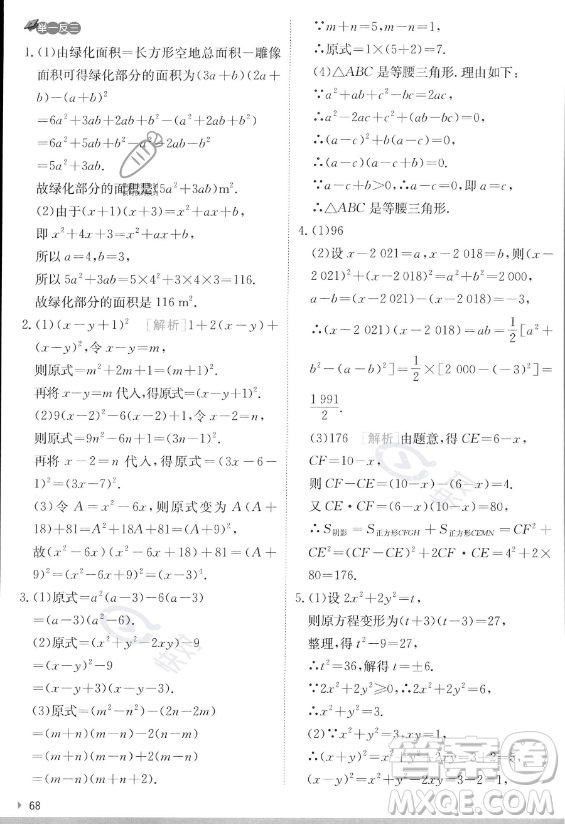 举一反三
1.(1)由绿化面积=长方形空地总面积-雕像
面积可得绿化部分的面积为(3a+b)(2a+
b)-(a+b)²
=6a²+3ab+2ab+b²-(a+b)²
=6a²+5ab+b²-a²-2ab-b²
=5a²+3ab.
故绿化部分的面积是(5a²+3ab)m².
(2)由于(x+1)(x+3)=x²+ax+b,
即x²+4x+3=x²+ax+b,
所以a=4,b=3,
所以5a²+3ab=5×4²+3×4×3=116.
故绿化部分的面积是116 m².
2.(1)(x-y+1)² [解析]1+2(x-y)+
(x-y)²,令x-y=m,
则原式=m²+2m+1=(m+1)².
再将x-y=m代入,得原式=(x-y+1)².
(2)9(x-2)²-6(x-2)+1,令x-2=n,
则原式=9n²-6n+1=(3n-1)².
再将x-2=n代入,得原式=(3x-6-
1)²=(3x-7)².
(3)令A=x²-6x,则原式变为A(A+
18)+81=A²+18A+81=(A+9)²,
故(x²-6x)(x²-6x+18)+81=(x²-6x+
9)²=(x-3)⁴.
3.(1)原式=a²(a-3)-6(a-3)
=(a-3)(a²-6).
(2)原式=(x²+y²-2xy)-9
=(x-y)²-9
=(x-y+3)(x-y-3).
(3)原式=(m²-2mn+n²)-(2m-2n)
=(m-n)²-2(m-n)
=(m-n)(m-n-2).
68
∵m+n=5,m-n=1,
∴原式=1×(5+2)=7.
(4)△ABC是等腰三角形.理由如下:
∵a²-ab+c²-bc=2ac,
∴a²-2ac+c²+(ab-bc)=0,
∴(a-c)²-b(a-c)=0,
∴(a-c)(a-c+b)=0.
∵a-c+b>0,∴a-c=0,∴a=c,
∴△ABC是等腰三角形.
4.(1)96
(2)设x-2 021=a,x-2 018=b,则(x-
2 021)²+(x-2 018)²=a²+b²=2 000,
a-b=(x-2 021)-(x-2 018)=-3,
∴(x-2 021)(x-2 018)=ab=1/2[a²+
b²-(a-b)²]=1/2×[2 000-(-3)²]=
1 991/2.
(3)176 [解析]由题意,得CE=6-x,
CF=10-x,
∴CF-CE=(10-x)-(6-x)=4.
又CE·CF=(6-x)(10-x)=80,
∴S阴影=S正方形CFGH+S正方形CEMN=CF²+
CE²=(CF-CE)²+2CF·CE=4²+2×
80=176.
5.(1)设2x²+2y²=t,
则原方程变形为(t+3)(t-3)=27,
整理,得t²-9=27,
∴t²=36,解得t=±6.
∵2x²+2y²≥0,∴2x²+2y²=6,
∴x²+y²=3.
(2)∵(x²+y²)=3,xy=1,
∴(x+y)²=x²+2xy+y²=3+2=5,
(x-y)²=x²+y²-2xy=3-2=1.